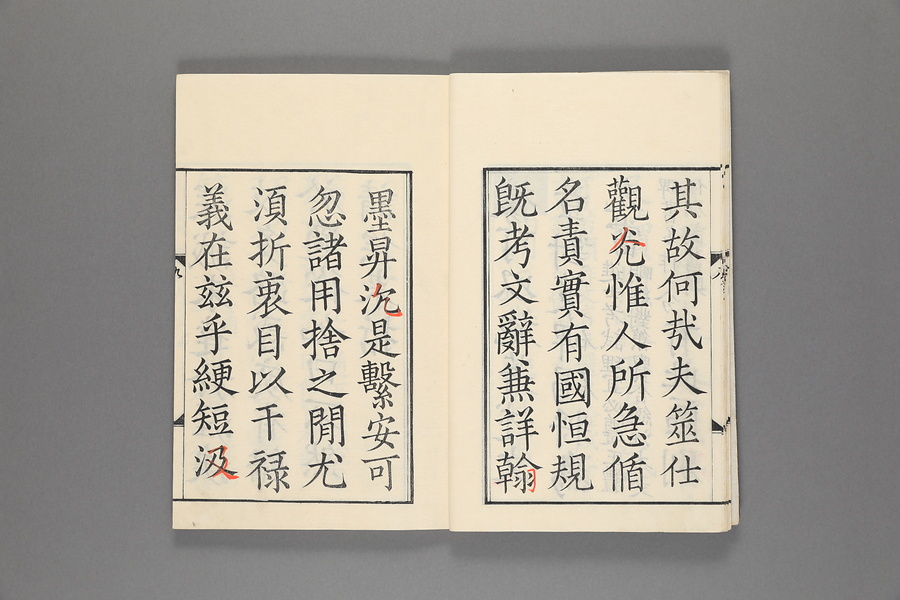 其故何哉夫筮仕
觀光惟人所急循
名責實有國恒規
旣考文辭兼詳翰
墨昇沉是繫安可
忽諸用捨之閒尤
須折衷目以干禄
義在玆乎綆短汲